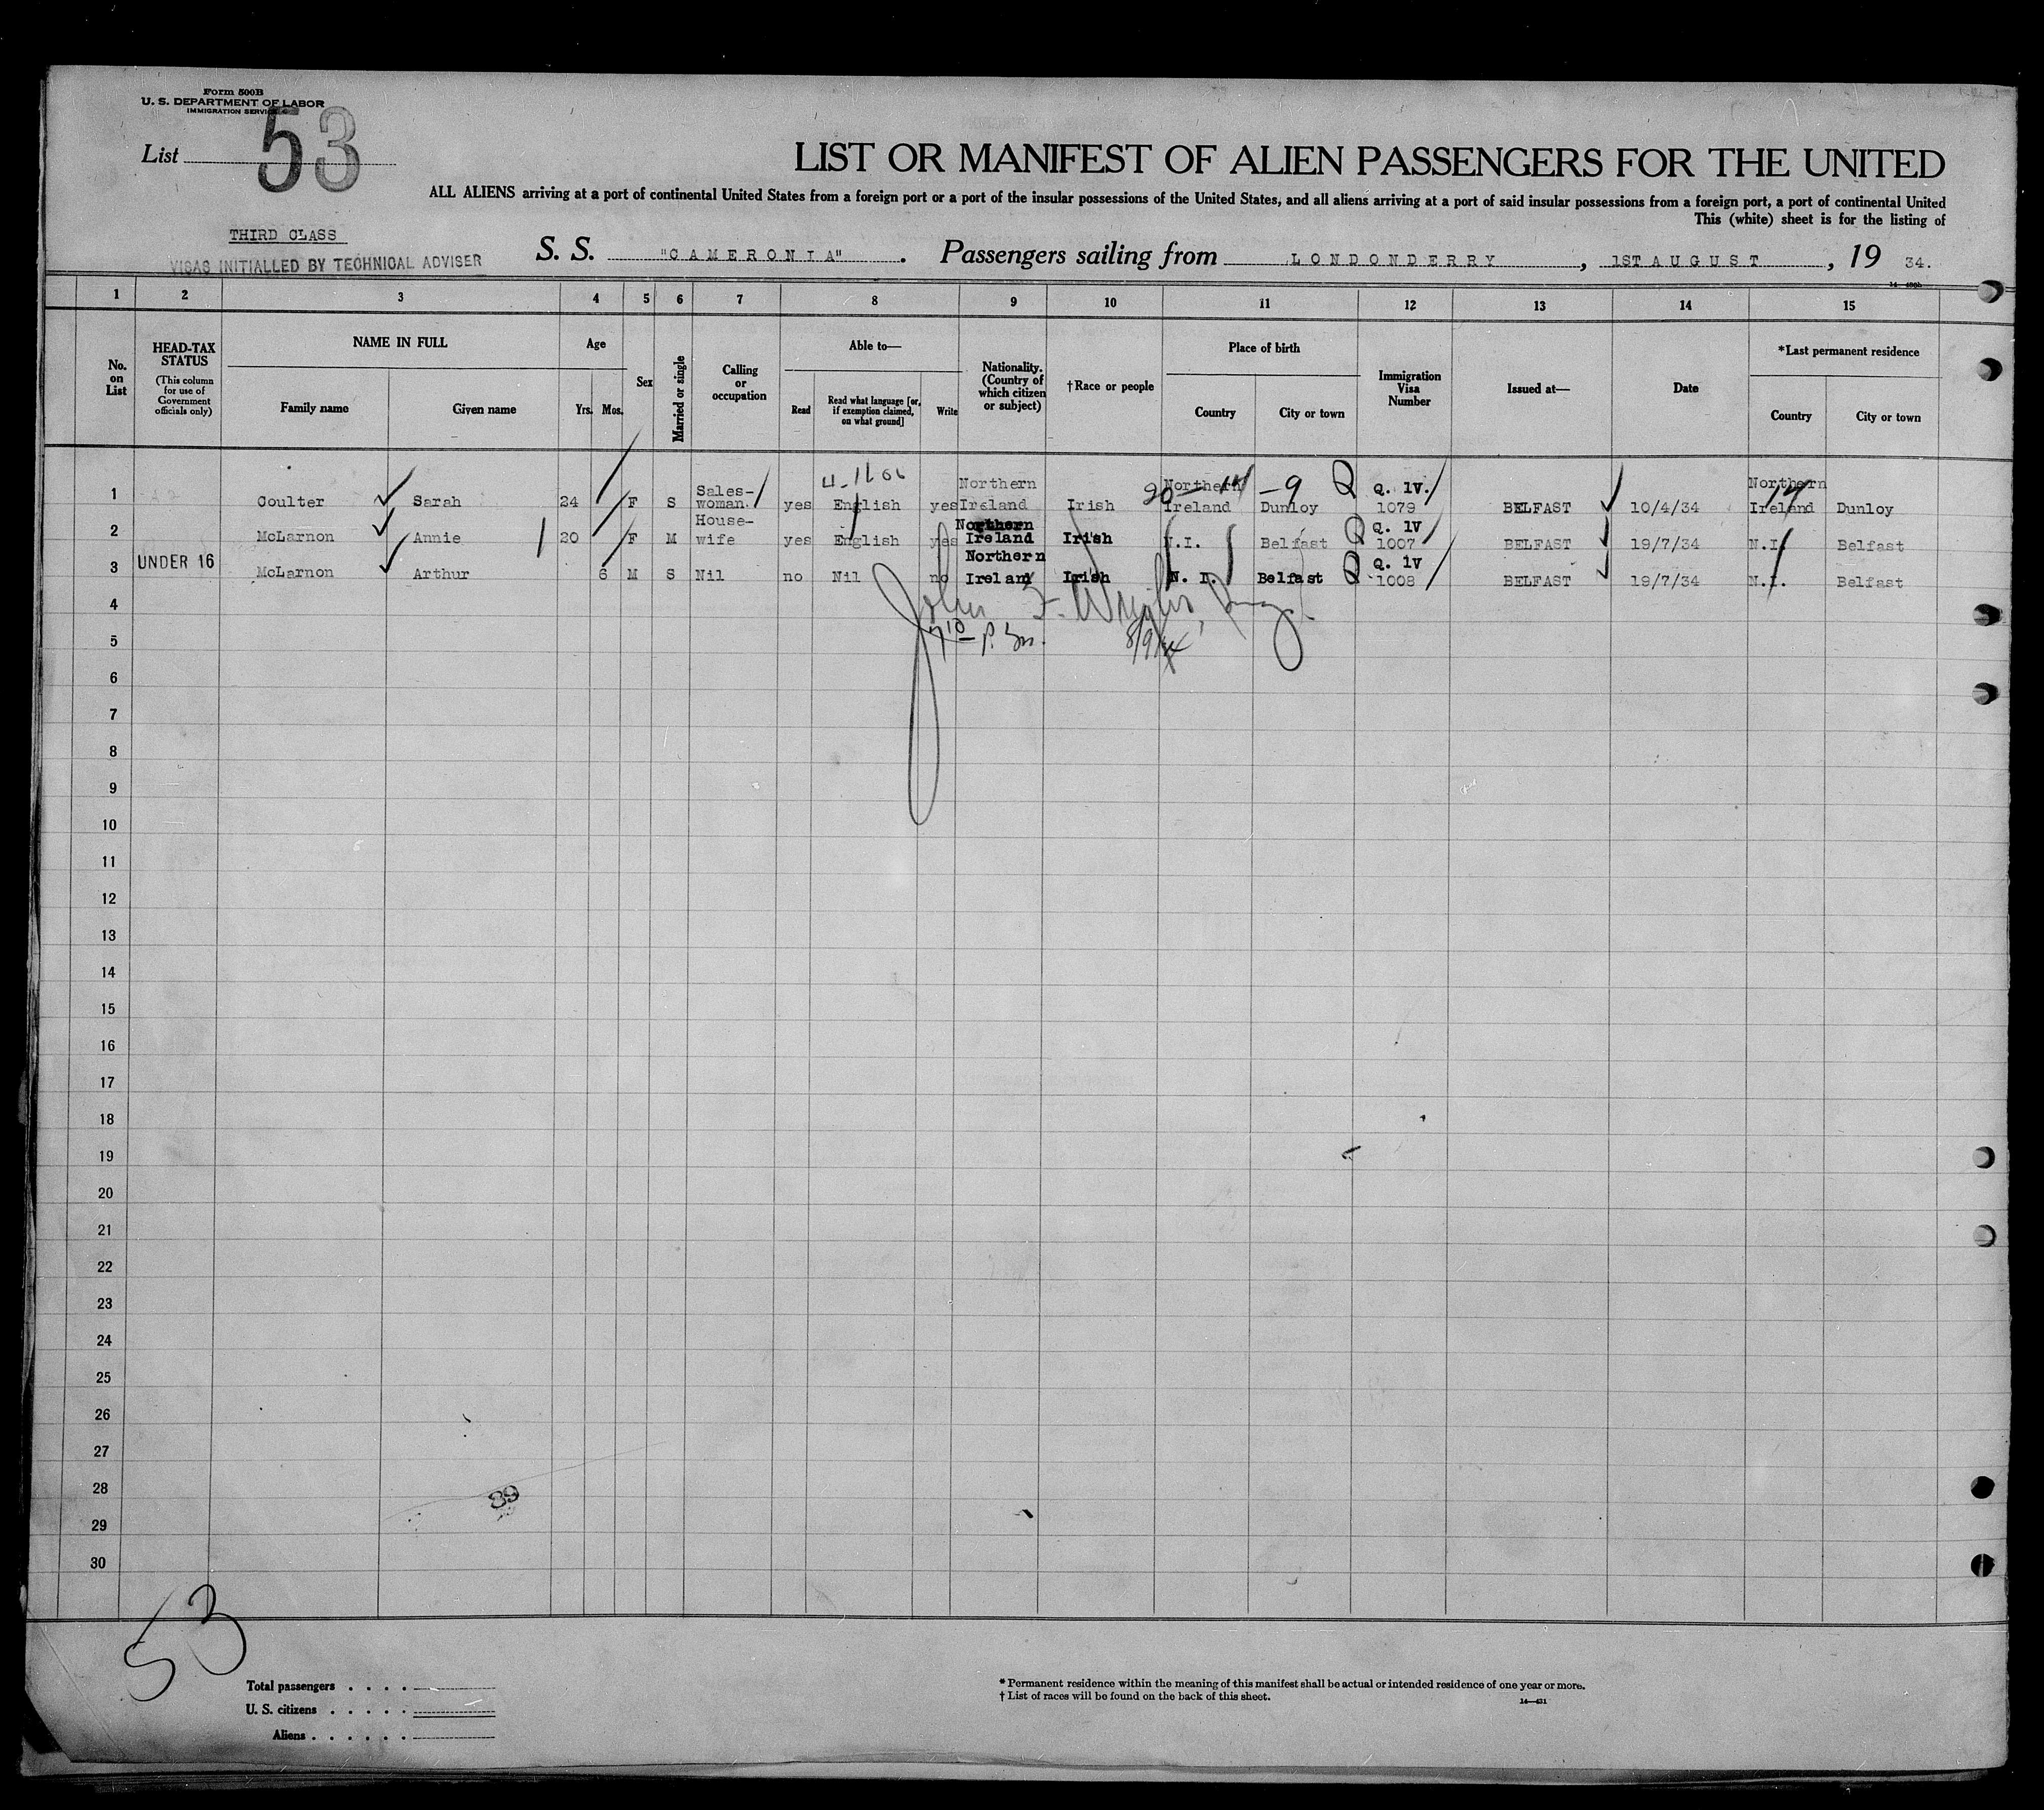 Form 500B
U. S. DEPARTMENT OF LABOR
IMMIGRATION SERVICE
List 53
LIST OR MANIFEST OF ALIEN PASSENGERS FOR THE UNITED
ALL ALIENS arriving at a port of continental United States from a foreign port or a port of the insular possessions of the United States, and all aliens arriving at a port of said insular possessions from a foreign port, a port of continental United
This (white) sheet is for the listing of
THIRD CLASS
VISAS INITIALLED BY TECHNICAL ADVISER
S. S. "CAMERONIA". Passengers sailing from LONDONDERRY, 1ST AUGUST, 19 34.
1 2 3 4 5 6 7 8 9 10 11 12 13 14 15
No. on List
HEAD-TAX STATUS (This column for use of Government officials only)
NAME IN FULL
Family name Given name
Age
Yrs. Mos.
Sex
Married or single
Calling or occupation
Able to—
Read Read what language [or, if exemption claimed, on what ground] Write
Nationality. (Country of which citizen or subject)
†Race or people
Place of birth
Country City or town
Immigration Visa Number
Issued at—
Date
*Last permanent residence
Country City or town
20 — 14 — 9 Q 14
1 Coulter Sarah 24 F S Sales-woman. yes English yes Northern Ireland Irish Northern Ireland Dunloy Q. 1V. 1079 BELFAST 10/4/34 Northern Ireland Dunloy
2 McLarnon Annie 20 F M House-wife yes English yes Northern Ireland Irish N.I. Belfast Q Q. 1V 1007 BELFAST 19/7/34 N.I. Belfast
3 UNDER 16 McLarnon Arthur 6 M S Nil no Nil no Northern Ireland Irish N. I. Belfast Q Q. 1V 1008 BELFAST 19/7/34 N.I. Belfast
4
5
6
7
8
9
10
11
12
13
14
15
16
17
18
19
20
21
22
23
24
25
26
27
28
29
30
39
53
Total passengers
U. S. citizens
Aliens
* Permanent residence within the meaning of this manifest shall be actual or intended residence of one year or more.
† List of races will be found on the back of this sheet.
14—431